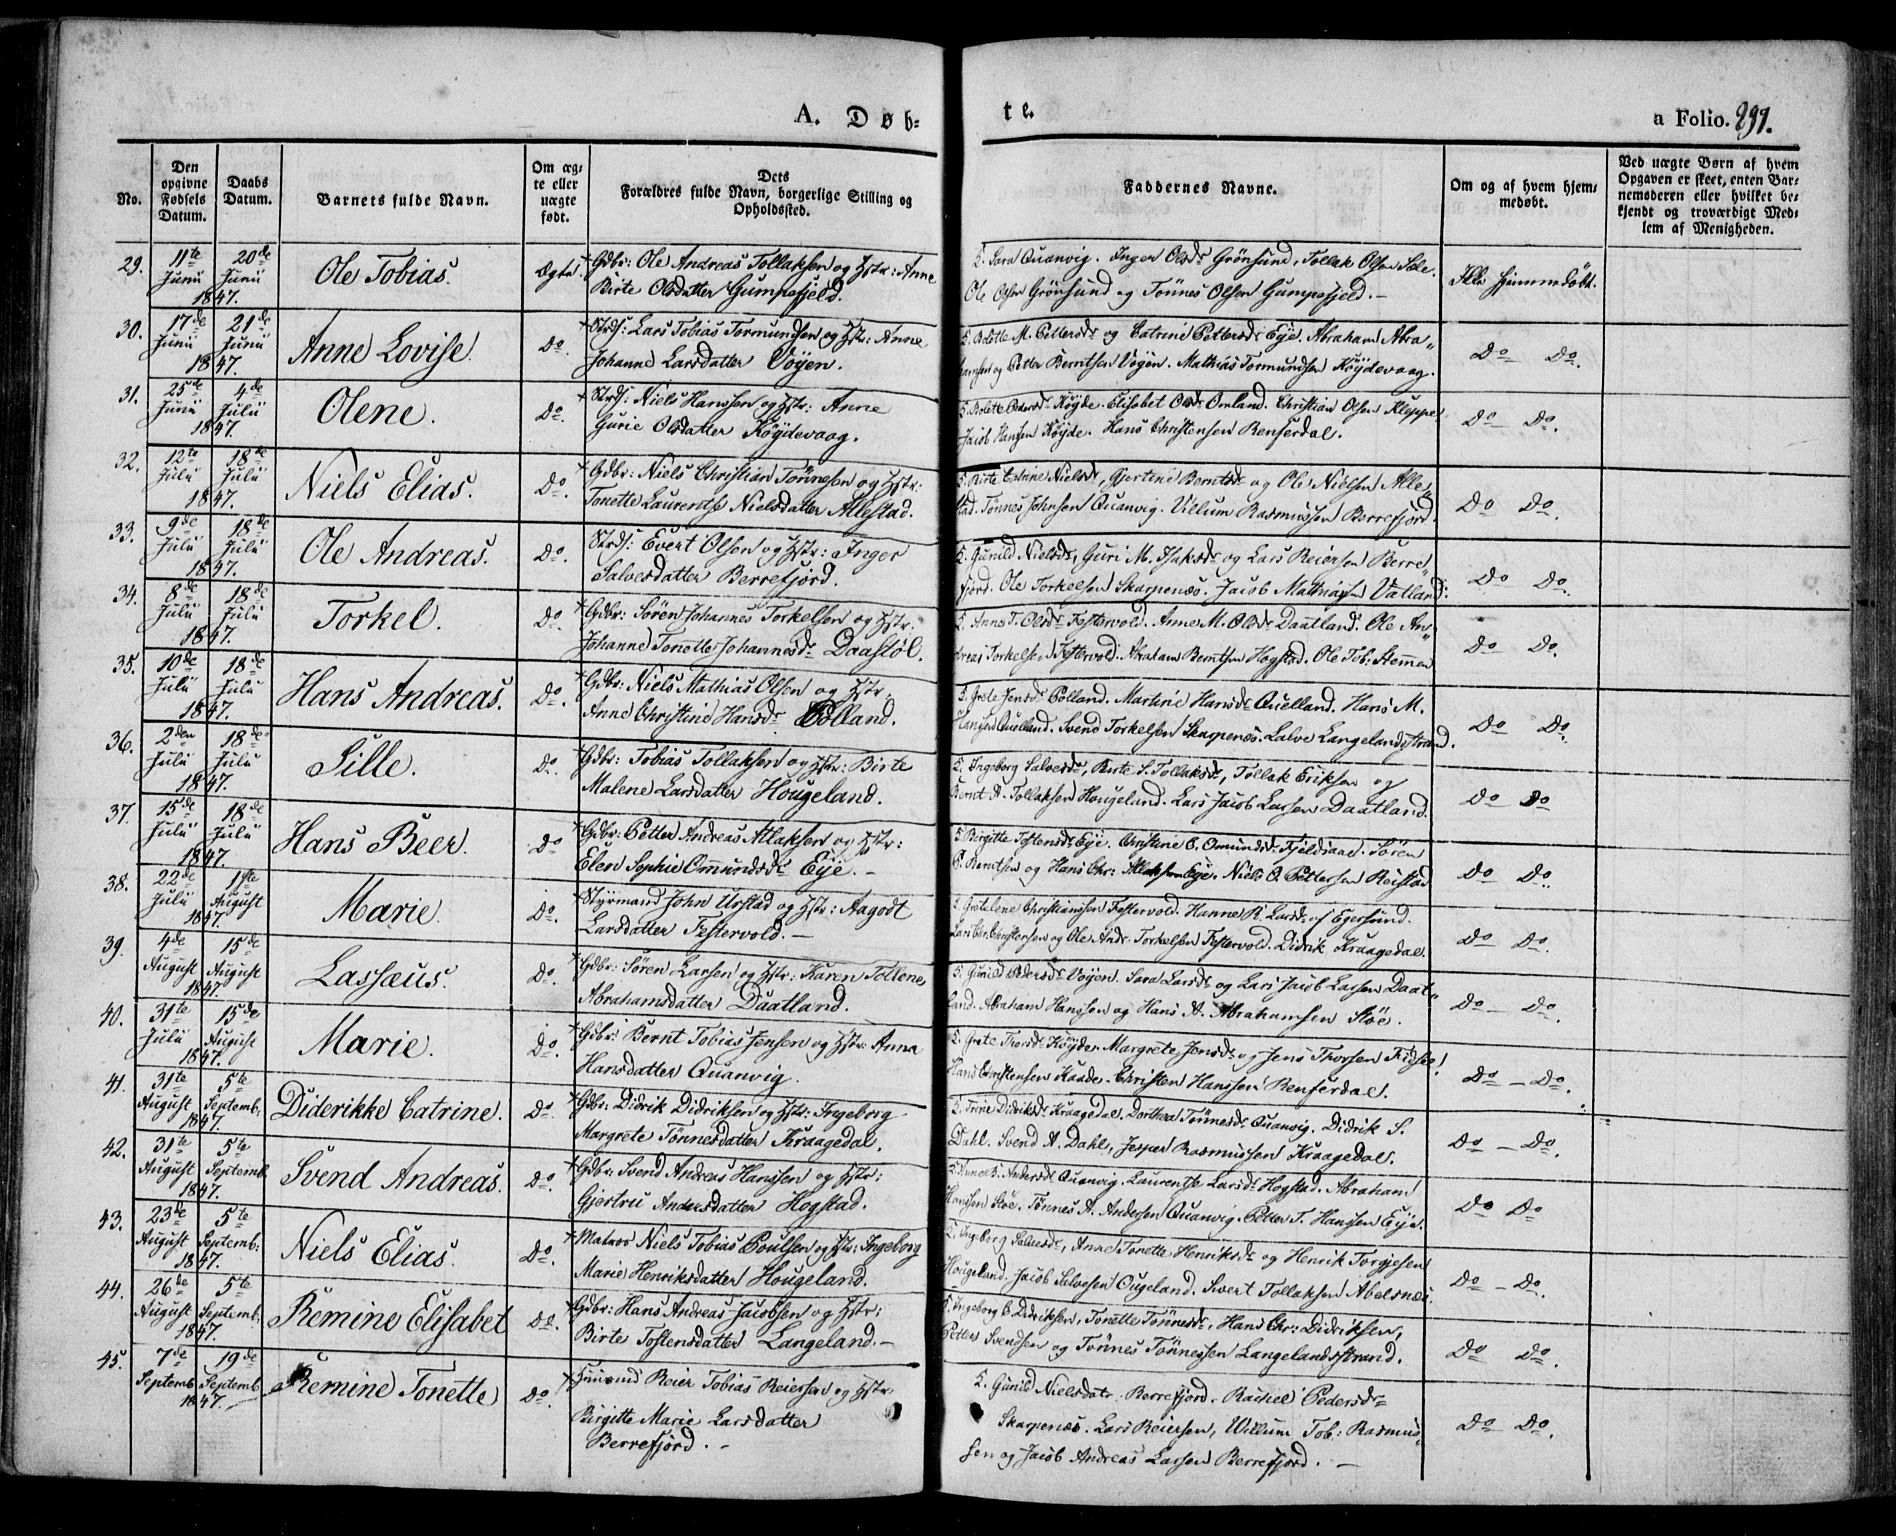 A. Døb-
te.
a Folio. 291.
No.
Den opgivne Fødsels Datum.
Daabs Datum.
Barnets fulde Navn.
Om ægte eller uægte født.
Dets Forældres fulde Navn, borgerlige Stilling og Opholdssted.
Faddernes Navne.
Om og af hvem hjemmedøbt.
Ved uægte Børn af hvem Opgaven er skeet, enten Barnemoderen eller hvilket bekjendt og troværdigt Medlem af Menigheden.
29. 11te Junii 20de Junii 1847. Ole Tobias. Ægte. Gdbr: Ole Andreas Tollaksen og Hstr: Anne
Birte Olsdatter Gumpefjeld.
5. Sara Quanvig. Inger Olsdr Grönsund, Tollak Olsen Sæle.
Ole Olsen Grönsund og Tönnes Olsen Gumpefjeld.—
Ikke hjemmedøbt.
30. 17de Junii 21de Junii 1847. Anne Lovise. Do. Strds: Lars Tobias Tormundsen og Hstr: Anne
Johanne Larsdatter Vöyen.
5. Bolette M. Pettersdr og Catrine Pettersdr Eye. Abraham Abra-
hamsen og Petter Berntsen Vögen. Mathias Tormundsen Köydevaag.
Do Do.
31. 25de Junii 4de Julii 1847. Olene. Do. Strds: Niels Hanssen og Hstr: Anne
Gurie Olsdatter Köydevaag.
5. Bolette Pedersdr Köyde. Elisabet Olsdr Omland. Christian Olsen Kleppe.
Jacob Hansen Köyde. Hans Christensen Renserdal.
Do Do.
32. 12te Julii 18de Julii 1847. Niels Elias. Do. Gdbr: Niels Christian Tönnesen og Hstr:
Tonette Laurentse Nielsdatter Allestad.
5. Birte Catrine Nielsdr, Gjertine Berntsdr og Ole Nielsen Alle-
stad. Tönnes Johnsen Quanvig. Villum Rasmussen Berrefjord.
Do Do.
33. 9de Julii 18de Julii 1847. Ole Andreas. Do. Strds: Evert Olsen og Hstr: Inger
Salvesdatter Berrefjord.
5. Gunild Nielsdr, Guri M. Isaksdr og Lars Reiersen Berre-
fjord. Ole Torkelsen Skarpenæs. Jacob Mathiassen Vatland.
Do Do.
34. 8de Julii 18de Julii 1847. Torkel. Do. Gdbr: Sören Johannes Torkelsen og Hstr.
Johanne Tonette Johannesdr Daastöl.
5. Anne T. Olsdr Festervold. Anne M. Olsdr Daatland. Ole An-
dreas Torkelsen Festervold. Abraham Berntsen Hogstad. Ole Tob: Stemmen
Do Do.
35. 10de Julii 18de Julii 1847. Hans Andreas. Do. Gdbr: Niels Mathias Olsen og Hstr.
Anne Christine Hansdr Polland.
5. Grete Jensdr Polland. Martine Hansdr Quelland. Hans M.
Hansen Quelland. Svend Torkelsen Skarpenæs. Salve Langelandsstrand.
Do Do.
36. 2den Julii 18de Julii 1847. Sille. Do. Gdbr: Tobias Tollaksen og Hstr: Birte
Malene Larsdatter Hougeland.
5. Ingeborg Salvesdr, Birte S. Tollaksdr, Tollak Eriksen og
Bernt A. Tollaksen Hougeland. Lars Jacob Larsen Daatland.
Do Do
37. 15de Julii 18de Julii 1847. Hans Beer. Do Gdbr: Petter Andreas Atlaksen og Hstr:
Elen Sophie Omundsdr Eye.—
5. Birgitte Tostensdr Eye. Christine E. Omundsdr Fjeldsaae. Sören
P. Berntsen og Hans Chr: Atlaksen Eye. Niels O. Pettersen Reistad
Do Do.
38. 22de Julii 1ste August 1847. Marie. Do. Styrmand John Urstad og Hstr: Aagodt
Larsdatter Festervold.—
5. Gretelene Christianssen Festervold. Hanne R. Larsdr af Egersund.
Lars Chr. Christensen og Ole Andr. Torkelsen Festervold. Didrik Kraagedal.
Do Do.
39. 4de August 15de August 1847. Lassæus. Do. Gdbr: Sören Larsen og Hstr: Karen Tolene
Abrahamsdatter Daatland.
5. Gunild Pedersdr Vögen. Sara Larsdr og Lars Jacob Larsen Daat-
land. Abraham Hanssen og Hans A. Abrahamsen Stöe.
Do – Do.
40. 31te Julii 15de August 1847. Marie. Do. Gdbr: Bernt Tobias Jensen og Hstr: Anna
Hansdatter Quanvig.
5. Grete Thorsdr Köyde. Margrete Jensdr og Jens Thorsen Fidsee!
Hans Christensen Kaade. Christen Hanssen Renserdal.
Do – Do.
41. 31te August 5te Septemb. 1847. Diderikke Catrine. Do. Gdbr: Didrik Didriksen og Hstr: Ingeborg
Margrete Tönnesdatter Kraagedal.
5. Trine Didriksdr Kraagedal. Dorthea Tönnesdr Quanvig. Didrik S.
Dahl. Svend A. Dahl, Jesper Rasmussen Kraagedal.
Do – Do.
42. 31te August 5te Septemb. 1847. Svend Andreas. Do. Gdbr: Svend Andreas Hanssen og Hstr:
Gjertru Andersdatter Hogstad.
5. Anne B. Andersdr Quanvig. Laurentse Larsdr Hogstad. Abraham
Hanssen Stöe. Tönnes A. Andersen Quanvig. Petter T. Hanssen Eye.
Do Do
43. 23de August 5te Septemb: 1847. Niels Elias. Do. Matros Niels Tobias Poulsen og Hstr: Ingeborg
Marie Henriksdatter Hougeland.
5. Ingeborg Salvesdr, Anne Tonette Henriksdr og Henrik Torgjesen
Hougeland. Jacob Salvesen Ougeland. Sivert Tollaksen Abelsnæs.
Do – Do.
44. 26de August 5te Septemb. 1847. Remine Elisabet Do. Gdbr: Hans Andreas Jacobsen og Hstr:
Birte Tostensdatter Langeland.—
5. Ingeborg C. Didriksen, Tonette Tönnesdr, Hans Chr: Didriksen,
Petter Svendsen og Tönnes Tönnessen Langelandsstrand.
Do Do.
45. 7de Septemb 19de Septemb 1847. Remine Tonette Do. Huusmd Reier Tobias Reiersen og Hstr
Birgitte Marie Larsdatter
Berrefjord.—
5. Gunild Nielsdatr. Berrefjord. Rachel Pedersdr
Skarpenæs. Lars Reiersen, Willum Tob: Rasmus-
sen og Jacob Andreas Larsen Berrefjord.—
Do Do.